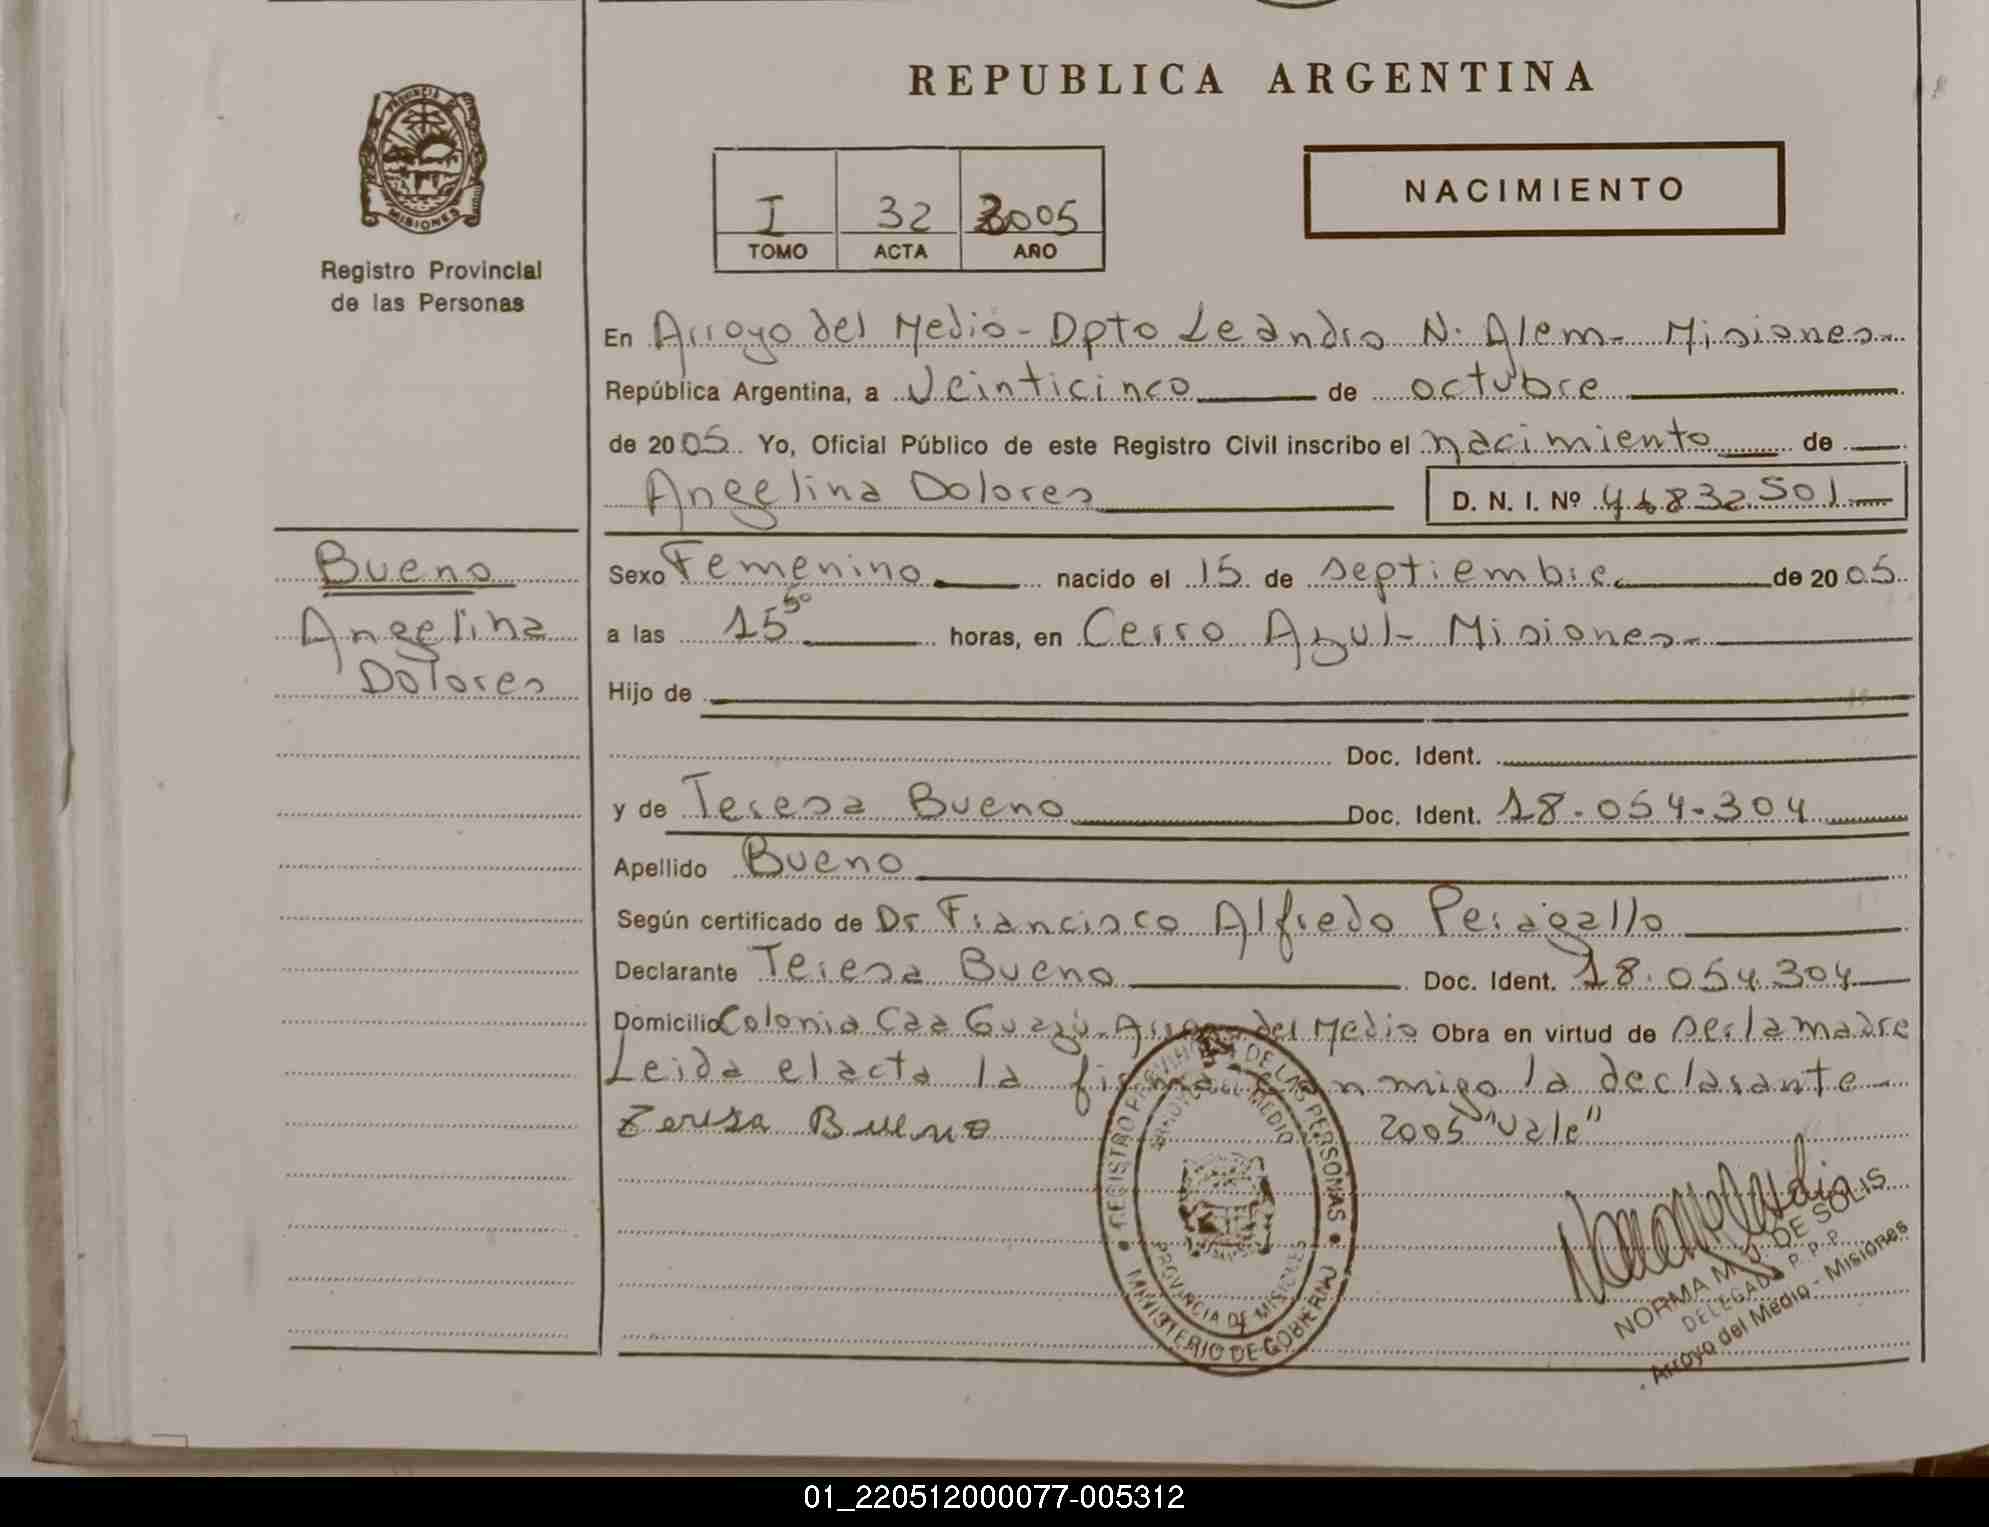 REPUBLICA ARGENTINA
PROVINCIA DE
MISIONES
Registro Provincial
de las Personas
I 32 2005
TOMO ACTA AÑO
NACIMIENTO
En Arroyo del Medio - Dpto Leandro N. Alem - Misiones -
República Argentina, a veinticinco de octubre
de 2005 Yo, Oficial Público de este Registro Civil inscribo el nacimiento de
Angelina Dolores D. N. I. Nº 46832501
Bueno
Angelina
Dolores
Sexo Femenino nacido el 15 de septiembre de 2005
a las 15 50 horas, en Cerro Azul - Misiones -
Hijo de
Doc. Ident.
y de Teresa Bueno Doc. Ident. 18.054.304
Apellido Bueno
Según certificado de Dr. Francisco Alfredo Peragallo
Declarante Teresa Bueno Doc. Ident. 18.054.304
Domicilio Colonia Caa Guazú - Arroyo del Medio Obra en virtud de ser la madre
Leida el acta la firma conmigo la declarante
Teresa Bueno 2005 "Vale"
REGISTRO PROVINCIAL DE LAS PERSONAS
ARROYO DEL MEDIO
PROVINCIA DE MISIONES
MINISTERIO DE GOBIERNO
NORMA M. J. DE SOLIS
DELEGADA P. P. P.
Arroyo del Medio - Misiones
01_220512000077-005312